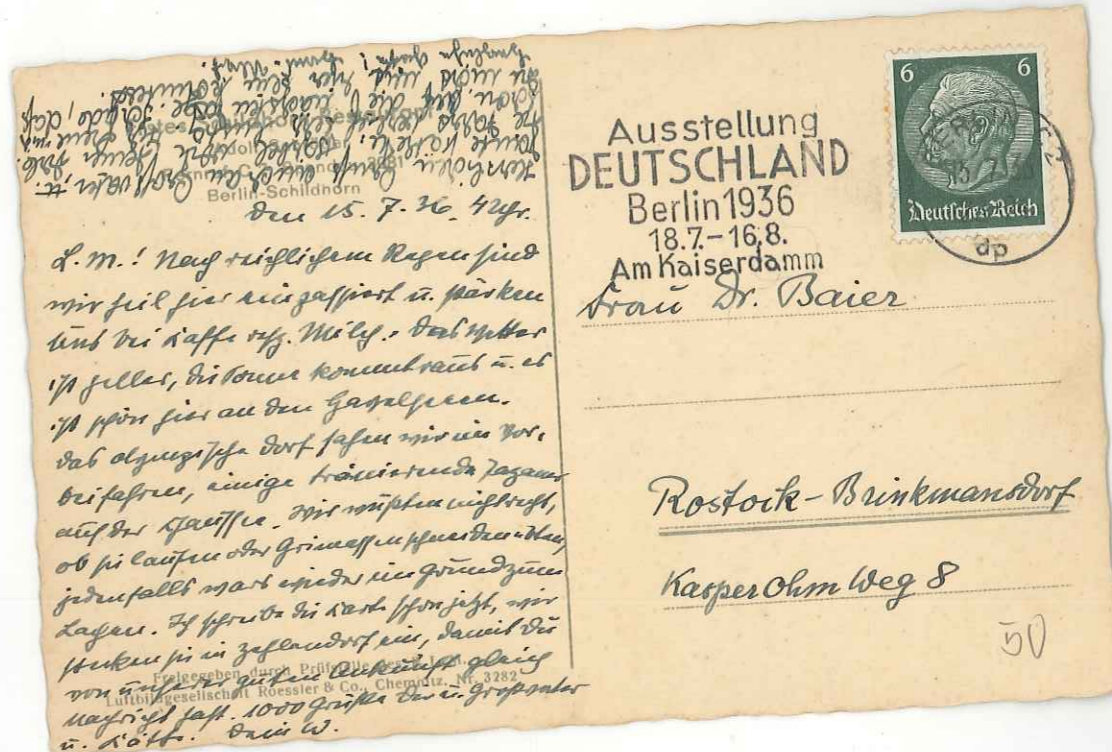 den 15. 7. 36, 4 Uhr.
L. M.! Nach reichlichem Regen sind
wir heil hier einpassiert u. stärken
uns bei Kaffe resp. Milch. Das Wetter
ist heller, die Sonne kommt raus u. es
ist schön hier an den Havelseen.
Das olympische Dorf sahen wir im Vor-
beifahren, einige trainierende Japaner
auf der Chaussee. Wir wußten nicht recht,
ob sie laufen oder Grimassen schneiden übten,
jedenfalls wars wieder ein Grund zum
Lachen. Ich schreibe die Karte schon jetzt, wir
stecken sie in Zehlendorf ein, damit Du
von unserer guten Ankunft gleich
Nachricht hast. 1000 Grüße Dir u. Großvater
u. Käthe. Dein W.
Herzlichen Gruß auch an Großvater, u.
Berlin-Schildhorn
Freigegeben durch
Luftbildgesellschaft Roessler & Co., Chemnitz, Nr. 3282
Ausstellung
DEUTSCHLAND
Berlin 1936
18.7.-16.8.
Am Kaiserdamm
6 6
Deutsches Reich
BERLIN
dp
Frau Dr. Baier
Rostock-Brinkmansdorf
Kasper Ohm Weg 8
50